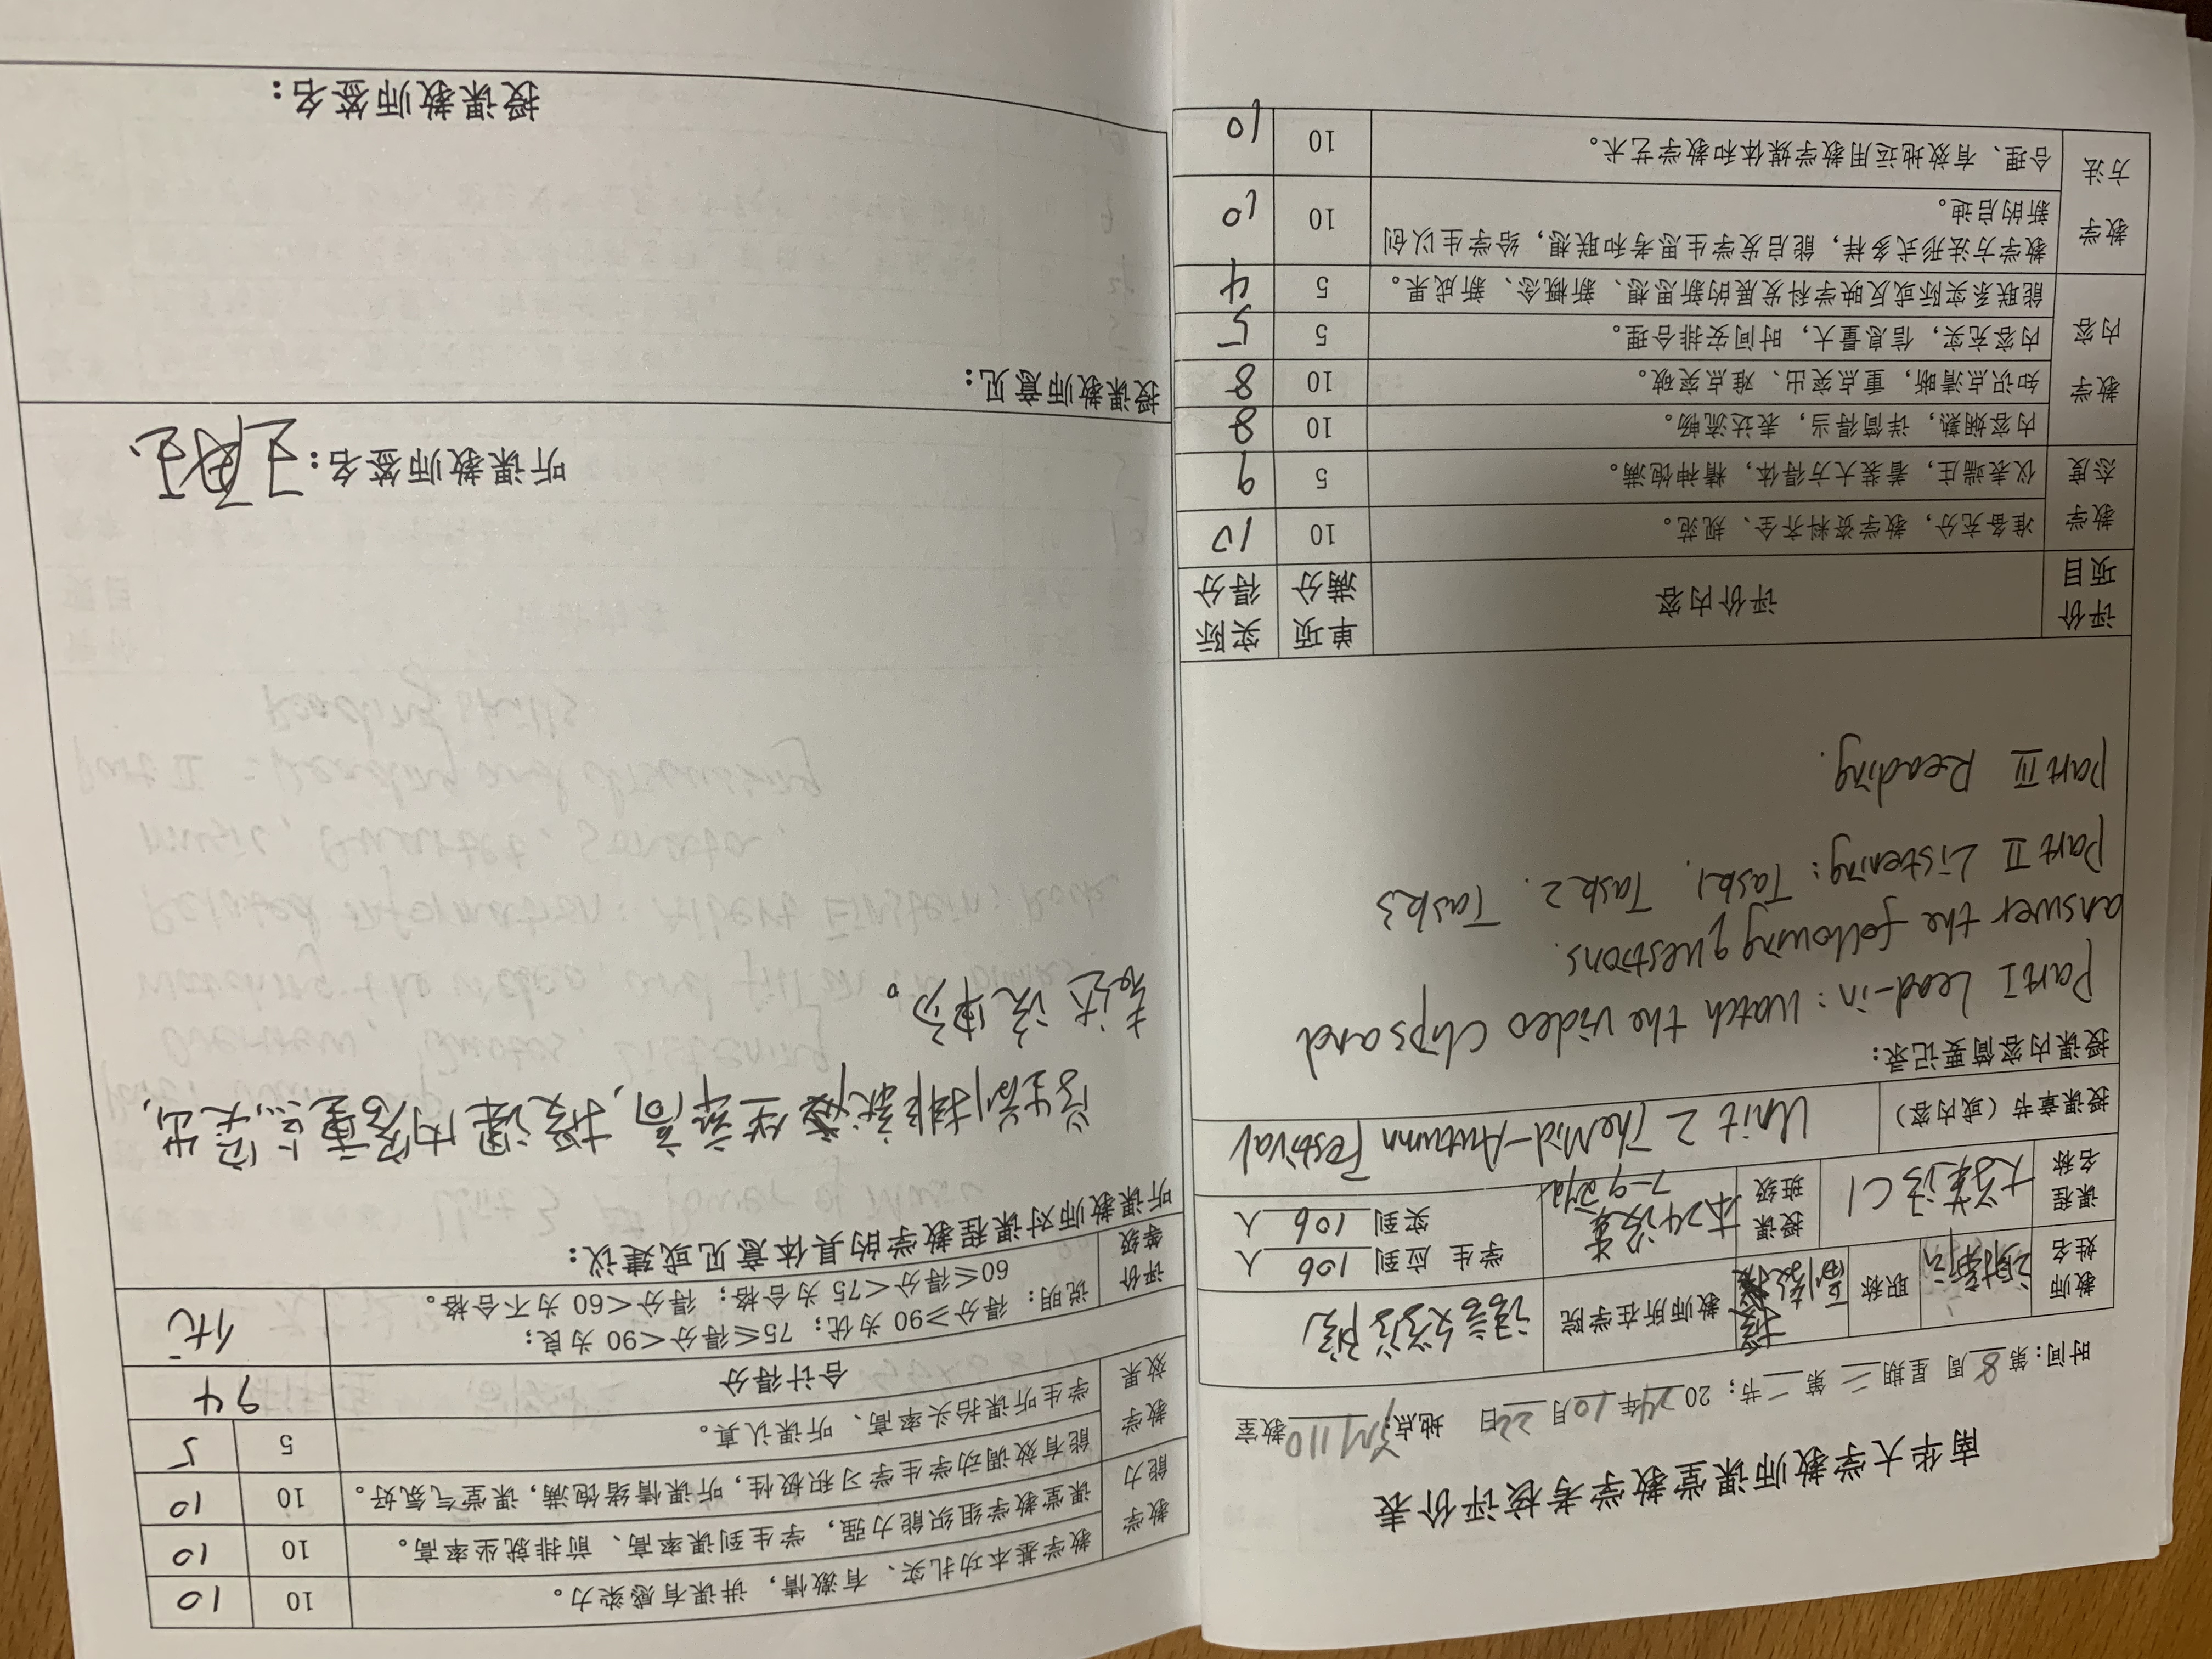 南华大学教师课堂教学考核评价表
时间：第8周 星期二 第二节； 2024年10月22日 地点： 110教室
教师姓名 职称 副教授 教师所在学院 语言文学学院 学生 应到 106 人
课程名称 大学英语C1 授课班级 本24 7-9 实到 106 人
授课章节（或内容） Unit 2 The Mid-Autumn Festival
授课内容简要记录：
Part I Lead-in: Watch the video clips and
answer the following questions.
Part II Listening: Task 1. Task 2. Task 3
Part III Reading.
评价项目 评价内容 单项满分 实际得分
教学态度 准备充分，教学资料齐全、规范。 10 10
仪表端庄，着装大方得体，精神饱满。 5
教学内容 内容娴熟，详简得当，表达流畅。 10 8
知识点清晰，重点突出、难点突破。 10 8
内容充实，信息量大，时间安排合理。 5 5
能联系实际或反映学科发展的新思想、新概念、新成果。 5 4
教学方法 教学方法形式多样，能启发学生思考和联想，给学生以创
新的启迪。 10 10
合理、有效地运用教学媒体和教学艺术。 10 10
教学能力 教学基本功扎实、有激情，讲课有感染力。 10 10
课堂教学组织能力强，学生到课率高、前排就坐率高。 10 10
教学效果 能有效调动学生学习积极性，听课情绪饱满，课堂气氛好。 10 10
学生听课抬头率高、听课认真。 5 5
合计得分 94
评价等级 说明：得分≥90 为优；75≤得分＜90 为良；
60≤得分＜75 为合格；得分＜60 为不合格。 优
听课教师对课程教学的具体意见或建议：
学生前排就座坐率高，授课内容重点突出，
表达流畅。
听课教师签名：
授课教师意见：
授课教师签名：